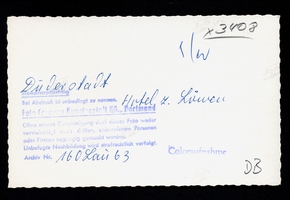 x3408
s/w
Duderstadt
Bei Abdruck ist unbedingt zu nennen:
Hotel z. Löwen
Foto Cramers Kunstanstalt KG., Dortmund
Ohne unsere Genehmigung darf dieses Foto weder
vervielfältigt noch dritten, unbefugten Personen
oder Firmen zugängig gemacht werden.
Unbefugte Nachbildung wird strafrechtlich verfolgt.
Archiv Nr. 160 Lau 63
Coloraufnahme
DB